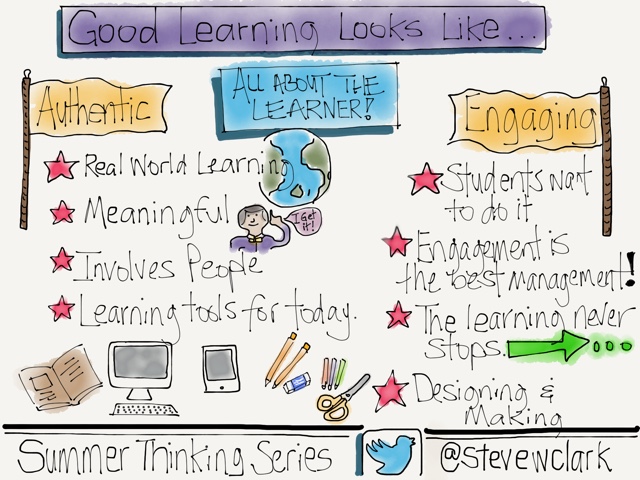 Good Learning Looks Like...
ALL ABOUT THE
LEARNER!
Authentic
Real World Learning
Meaningful
I Get
it!
Involves People
Learning tools for today.
Engaging
Students want
to do it
Engagement is
the best management!
The learning never
stops.
Designing &
Making
Summer Thinking Series
@stevewclark